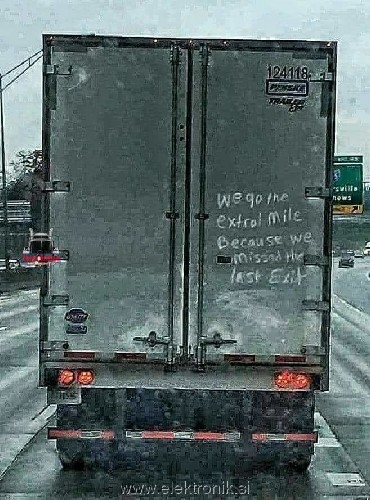 124118
We go the
extral Mile
Because we
missed the
last Exit
www.elektronik.si